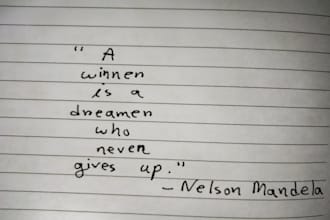 " A
winner
is a
dreamer
who
never
gives up."
- Nelson Mandela